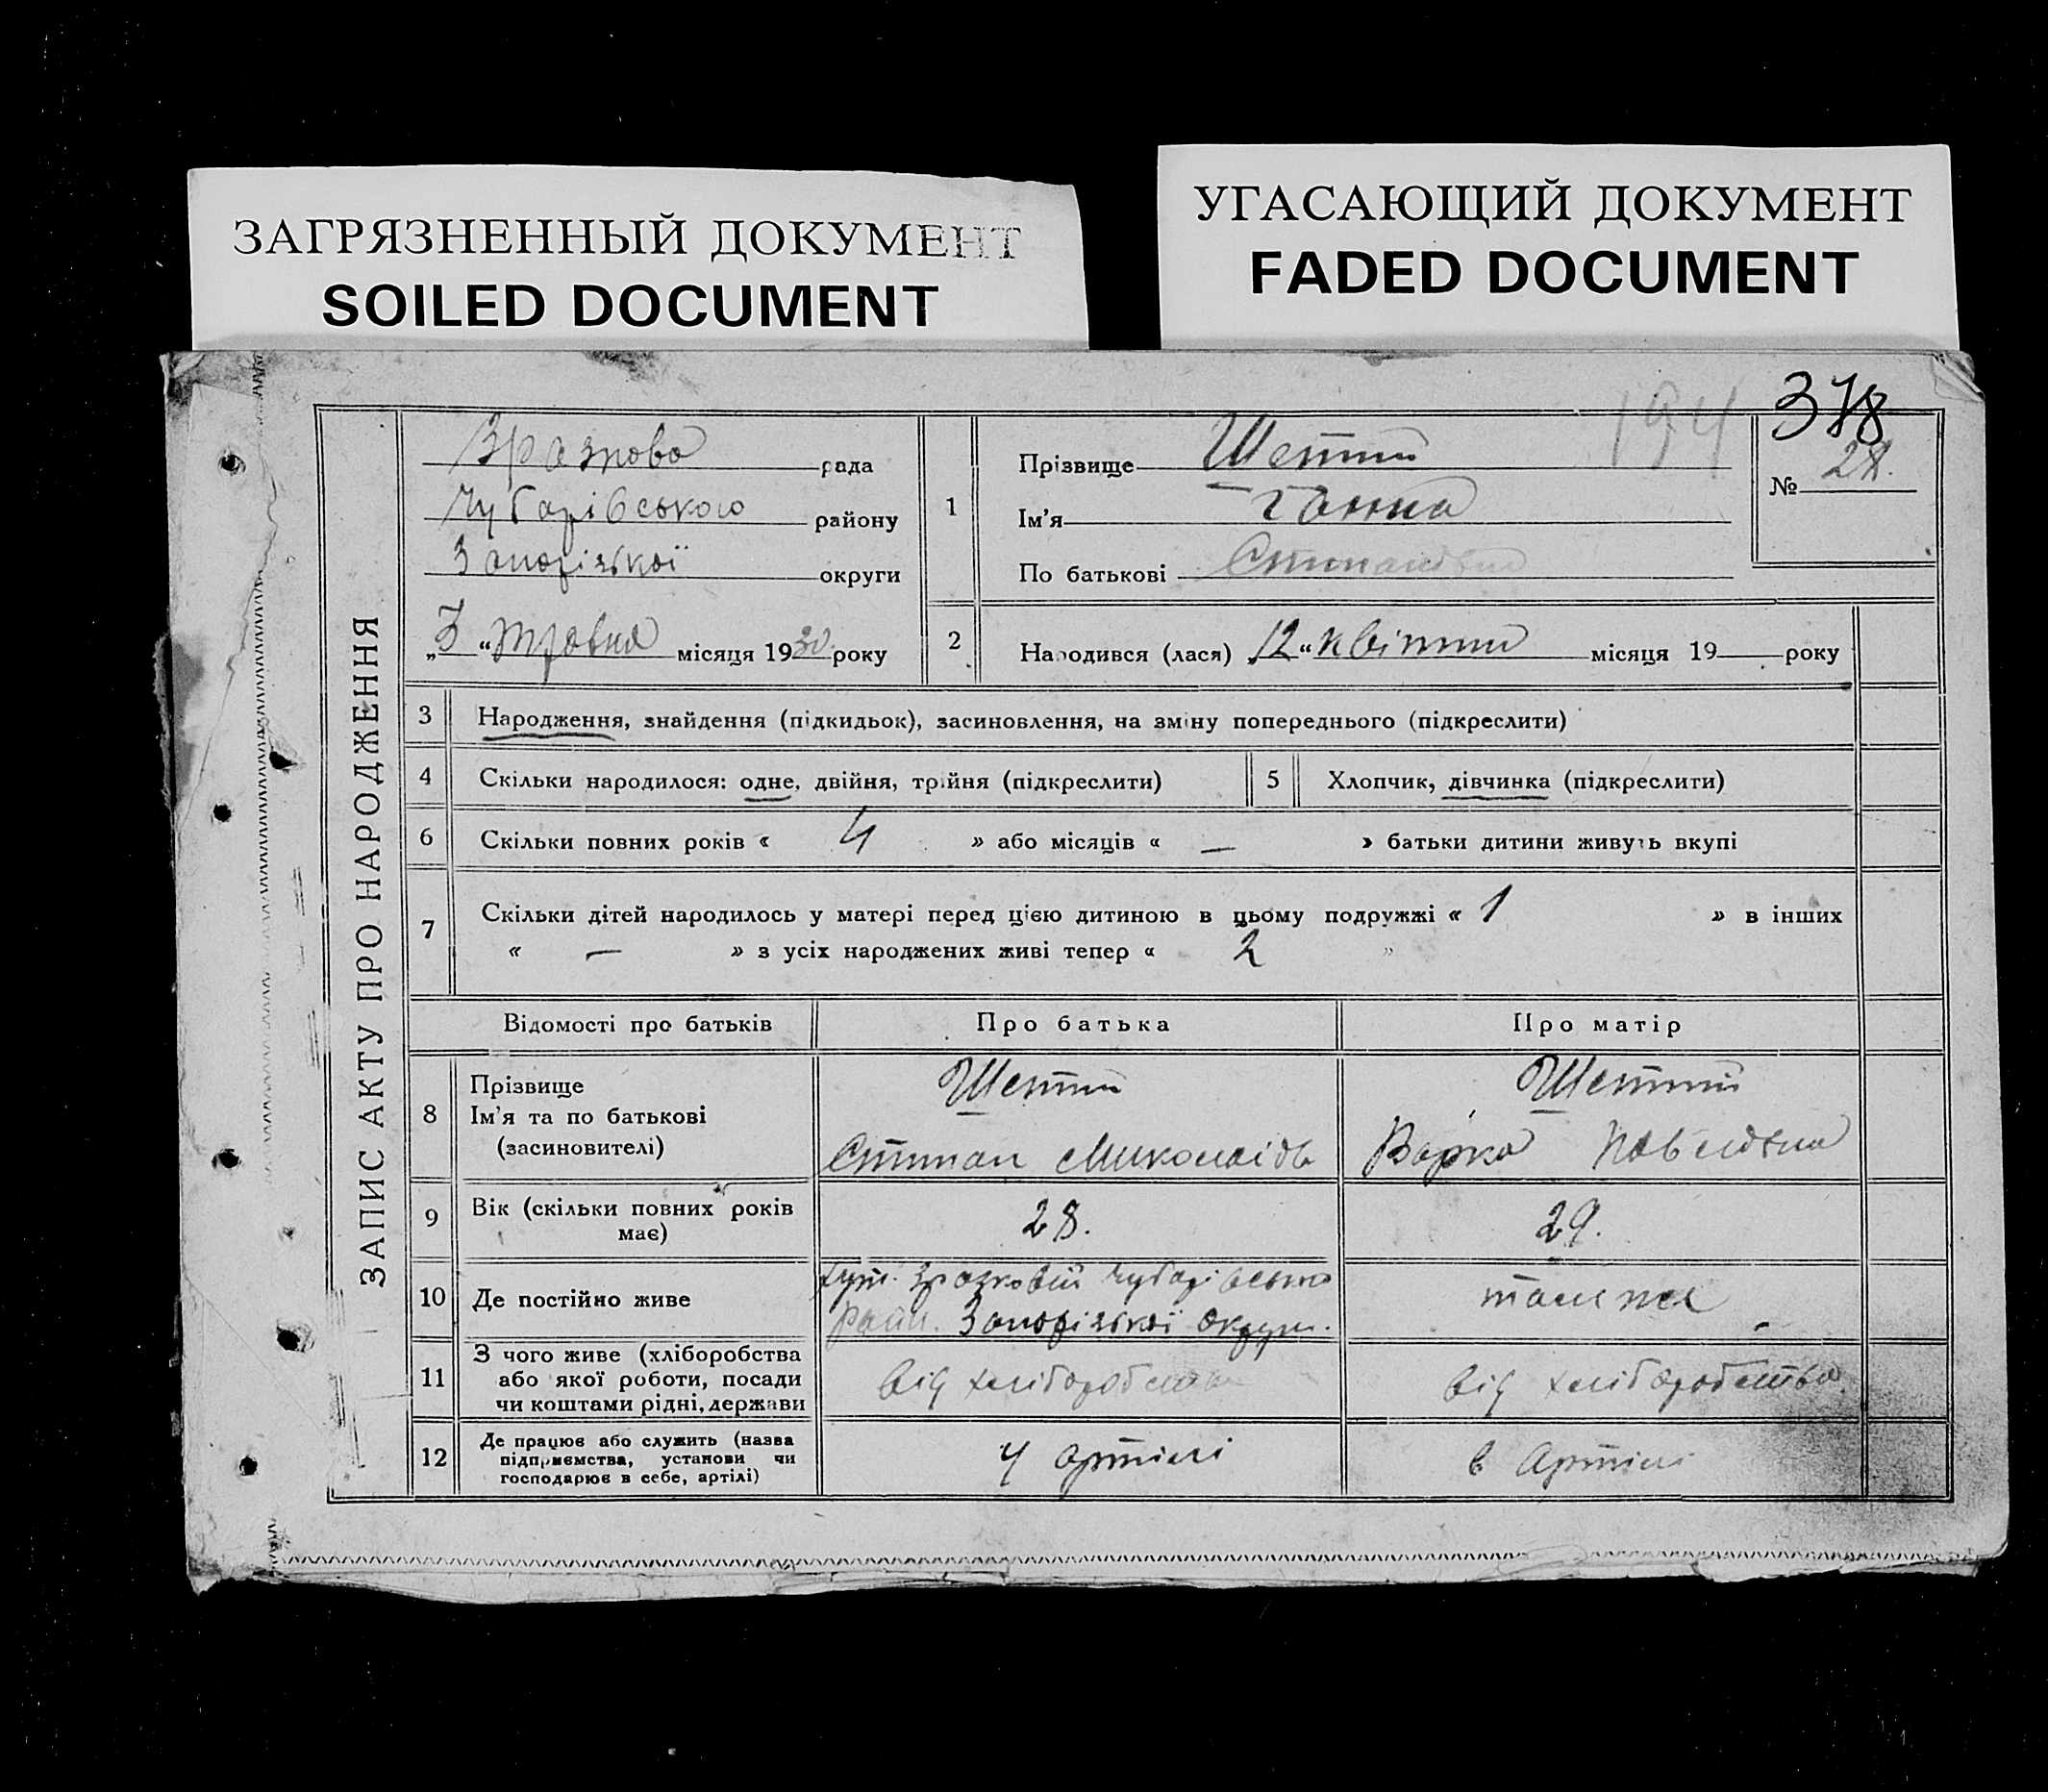 ЗАГРЯЗНЕННЫЙ ДОКУМЕНТ
SOILED DOCUMENT
УГАСАЮЩИЙ ДОКУМЕНТ
FADED DOCUMENT
194
378
ЗАПИС АКТУ ПРО НАРОДЖЕННЯ
Зразкова рада
Чубарівського району
Запорізької округи
„3“ травня місяця 1930 року
1
Прізвище
Ім'я Ганна
По батькові Степанівна
№ 28.
2
Народився (лася) 12“ квітня місяця 19 року
3
Народження, знайдення (підкидьок), засиновлення, на зміну попереднього (підкреслити)
4
Скільки народилося: одне, двійня, трійня (підкреслити)
5
Хлопчик, дівчинка (підкреслити)
6
Скільки повних років « 4 » або місяців « — » батьки дитини живуть вкупі
7
Скільки дітей народилось у матері перед цією дитиною в цьому подружжі « 1 » в інших
« — » з усіх народжених живі тепер « 2 »
Відомості про батьків
Про батька
Про матір
8
Прізвище
Ім'я та по батькові
(засиновителі)
Степан Миколаїв
Варка Павлівна
9
Вік (скільки повних років
має)
28.
29.
10
Де постійно живе
хут. Зразковий Чубарівсько
Райн. Запорізької округи.
там же
11
З чого живе (хліборобства
або якої роботи, посади
чи коштами рідні, держави
від хліборобства
від хліборобства
12
Де працює або служить (назва
підприємства, установи чи
господарює в себе, артілі)
у артілі
в Артілі